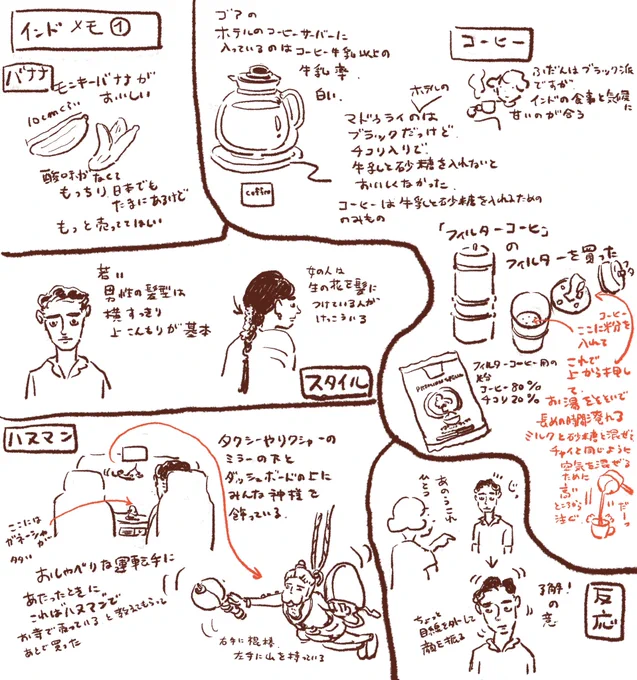 インドメモ①
バナナ
モンキーバナナが
おいしい
10cmくらい
酸味がなくて
もっちり、日本でも
たまにあるけど
もっと売っててほしい
ゴアの
ホテルのコーヒーサーバーに
入っているのはコーヒー牛乳以上の
牛乳率
白い
coffee
ホテルの
マドゥライのは
ブラックだっけど
チコリ入りで
牛乳と砂糖を入れないと
おいしくなかった
コーヒーは牛乳と砂糖を入れるための
のみもの
コーヒー
ふだんはブラック派
ですが
インドの食事と気候に
甘いのが合う
「フィルターコーヒー」
の
フィルターを買った
コーヒー
ここに粉を
入れて
これで
上から押し
て
お湯をそそいで
長めの時間淹れる
ミルクと砂糖と混ぜ
チャイと同じように
空気を混ぜる
ために
高い
ところから
注ぐ
だーっ
フィルターコーヒー用の
粉
コーヒー80%
チコリ20%
若い
男性の髪型は
横すっきり
上こんもりが基本
女の人は
生の花を髪に
つけている人が
けっこういる
スタイル
ハヌマン
タクシーやリクシャーの
ミラーの下と
ダッシュボードの上に
みんな神様を
飾っている
ここには
ガネーシャが
おしゃべりな運転手に
あたったときに
これはハヌマンで
お寺で売っていると教えてもらって
あとで買った
右手に棍棒
左手に山を持っている
あのうこれ
ひとつ
了解！
の意
ちょっと
目線を外して
顔を振る
反応